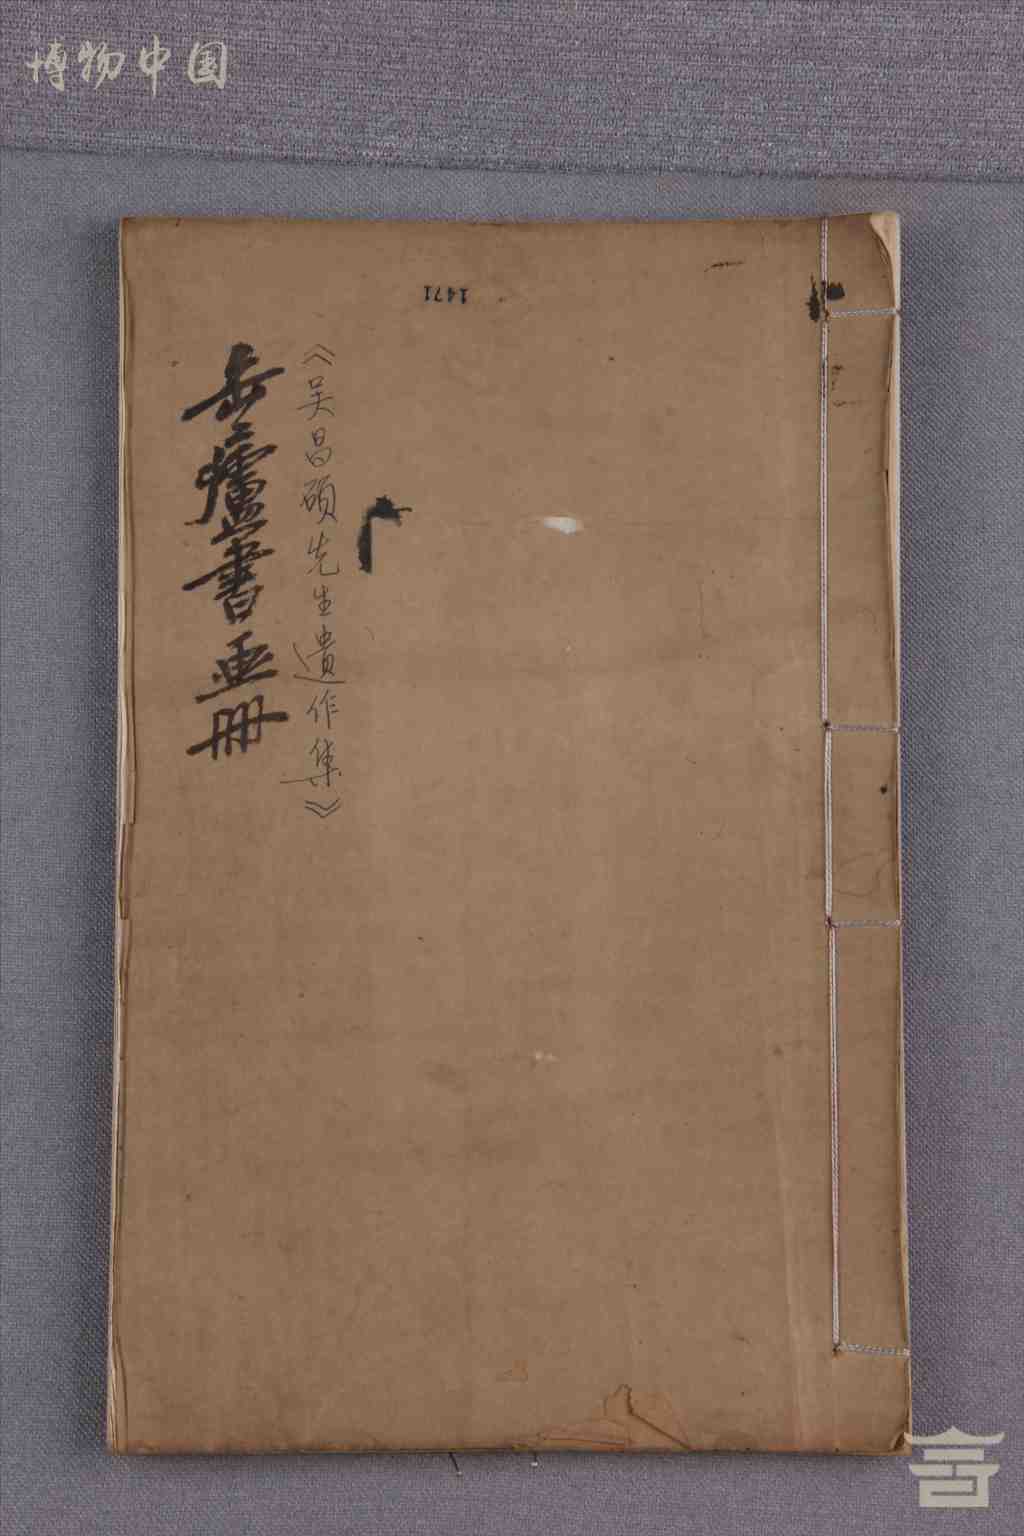 博物中国
1471
《吴昌硕先生遗作集》
缶廬書畫冊